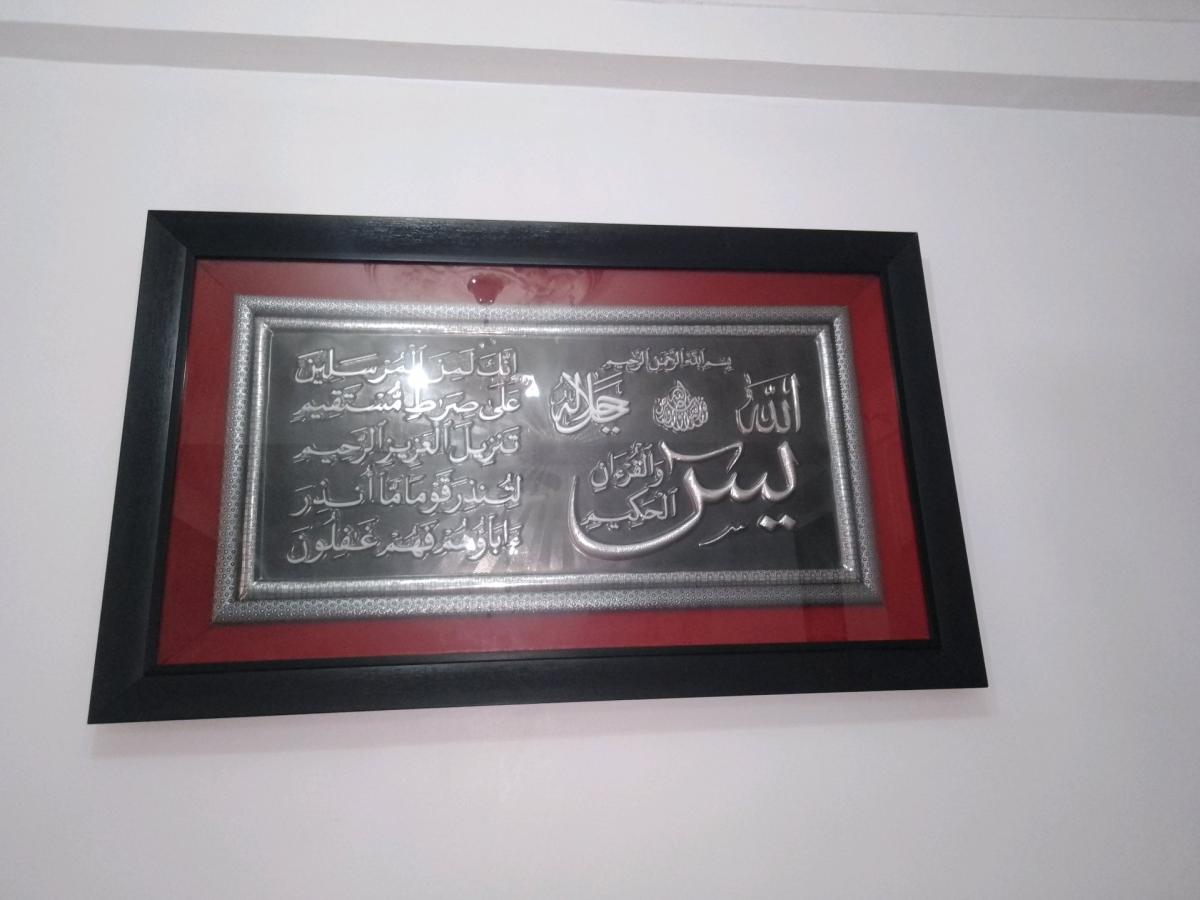 بِسْمِ اللَّهِ الرَّحْمَٰنِ الرَّحِيمِ
اللَّه
جَلَّ جَلَالُهُ
يسٓ
وَالْقُرْءَانِ
الْحَكِيمِ
إِنَّكَ لَمِنَ الْمُرْسَلِينَ
عَلَىٰ صِرَاطٍ مُسْتَقِيمٍ
تَنزِيلَ الْعَزِيزِ الرَّحِيمِ
لِتُنذِرَ قَوْمًا مَّا أُنذِرَ
ءَابَاؤُهُمْ فَهُمْ غَافِلُونَ